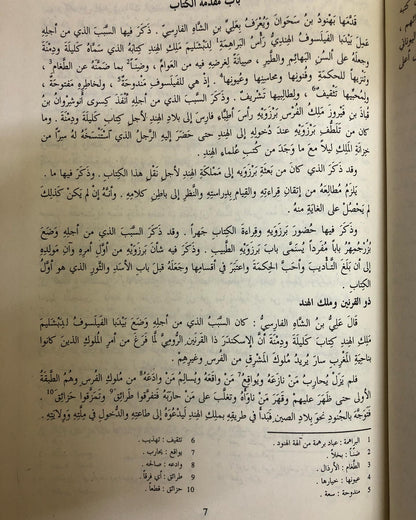 باب مقدمة الكتاب
قَدَّمَها بَهنُودُ بن سَحْوَانَ ويُعرَفُ بعَلِيّ بنِ الشَّاهِ الفارِسيِّ . ذكَرَ فيها السَّبَبَ الذي من أجلِهِ
عَمِلَ بَيْدَبا الفَيلَسوفُ الهِنديُّ رَأسُ البَراهِمةِ¹ لِدَبْشَليمَ مَلِكِ الهِندِ كِتابَهُ الذي سَمَّاهُ كَليلَةَ ودِمْنَةَ
وجعَلَهُ على ألسُنِ البَهائِمِ والطَّيرِ ، صِيانَةً لِغرَضِهِ فيه من العَوامِّ ، وضَنًّا² بما ضَمَّنَهُ عن الطَّغَامِ³ ،
وتنزيهًا لِلحكمَةِ وفُنونِها ومَحاسِنِها وعُيونِها⁴ . إذْ هيَ لِلفَيلَسوفِ مَندوحَةٌ⁵ ، ولخاطِرِهِ مَفتوحَةٌ ،
ولمُحِبِّيها تَثْقيفٌ⁶ ، ولِطالِبيها تَشْريفٌ . وذكَرَ السَّبَبَ الذي من أجلِهِ أنفَذَ كِسرى أنوشِرْوانُ بنُ
قُباذَ بنِ فَيروزَ مَلِكُ الفُرسِ بَرْزَوَيْهِ رَأسَ أطِبَّاءِ فارِسَ إلى بلادِ الهِندِ لأجلِ كِتابِ كَليلَةَ ودِمْنَةَ . وما
كان من تَلَطُّفِ بَرْزَوَيْهِ عندَ دُخولِهِ إلى الهِندِ حتى حَضَرَ إلَيهِ الرَّجُلُ الذي استَنْسَخَهُ لهُ سِرًّا من
خِزانَةِ المَلِكِ لَيلًا معَ ما وَجَدَ من كُتُبِ عُلَماءِ الهِندِ .
وقد ذكَرَ الذي كان من بَعثَةِ بَرْزَوَيْهِ إلى مَملَكَةِ الهِندِ لأجلِ نَقْلِ هذا الكِتابِ . وذكَرَ فيها ما
يَلزَمُ مُطالِعَهُ من إتقانِ قِراءتِهِ والقِيامِ بدِراسَتِهِ والنَّظَرِ إلى باطِنِ كلامِهِ . وأنَّهُ إنْ لم يَكُنْ كذلِكَ
لم يَحْصُلْ على الغايَةِ منهُ .
وذكَرَ فيها حُضورَ بَرْزَوَيْهِ وقِراءةَ الكِتابِ جَهرًا . وقد ذكَرَ السَّبَبَ الذي من أجلِهِ وَضَعَ
بُزُرْجُمِهْرُ بابًا مُفرَدًا يُسَمَّى بابَ بَرْزَوَيْهِ الطَّبيبِ . وذكَرَ فيه شأنَ بَرْزَوَيْهِ من أوَّلِ أمرِهِ وآنِ مَولِدِهِ
إلى أنْ بَلَغَ التَّأديبَ وأحَبَّ الحِكمَةَ واعتَبَرَ في أقسامِها وجَعَلَهُ قبلَ بابِ الأسَدِ والثَّورِ الذي هو أوَّلُ
الكِتابِ .
ذو القرنين وملك الهند
قالَ عَليُّ بنُ الشَّاهِ الفارِسيُّ : كان السَّبَبُ الذي من أجلِهِ وَضَعَ بَيْدَبا الفَيلَسوفُ لِدَبْشَليمَ
مَلِكِ الهِندِ كِتابَ كَليلَةَ ودِمْنَةَ أنَّ الإسكندَرَ ذا القَرنَينِ الرُّوميَّ لمَّا فَرَغَ من أمرِ المُلوكِ الذينَ كانوا
بناحِيَةِ المَغرِبِ سارَ يُريدُ مُلوكَ المَشرِقِ من الفُرسِ وغيرِهِم .
فلم يَزَلْ يُحارِبُ مَنْ نازَعَهُ ويُواقِعُ⁷ مَنْ واقَعَهُ ويُسالِمُ مَنْ وادَعَهُ⁸ من مُلوكِ الفُرسِ وهُمُ الطَّبَقَةُ
الأولى حتى ظَهَرَ عليهِم وقَهَرَ مَنْ ناوَأَهُ وتَغَلَّبَ على مَنْ حارَبَهُ فتَفَرَّقوا طَرائِقَ⁹ وتَمَزَّقوا حَزائِقَ¹⁰
فتَوَجَّهَ بالجُنودِ نحوَ بلادِ الصِّينِ فبَدَأَ في طَريقِهِ بمَلِكِ الهِندِ لِيَدعُوَهُ إلى طاعَتِهِ والدُّخولِ في مِلَّتِهِ ووِلايَتِهِ .
1 البراهمة : عباد برهمة من آلهة الهنود .
2 ضنّاً : بخلاً .
3 الطغام : الأرذال .
4 عيونها : خيارها .
5 مندوحة : سعة .
6 تثقيف : تهذيب .
7 يواقع : يحارب .
8 وادعه : صالحه .
9 طرائق : أي فرقاً .
10 حزائق : قطعاً .
7